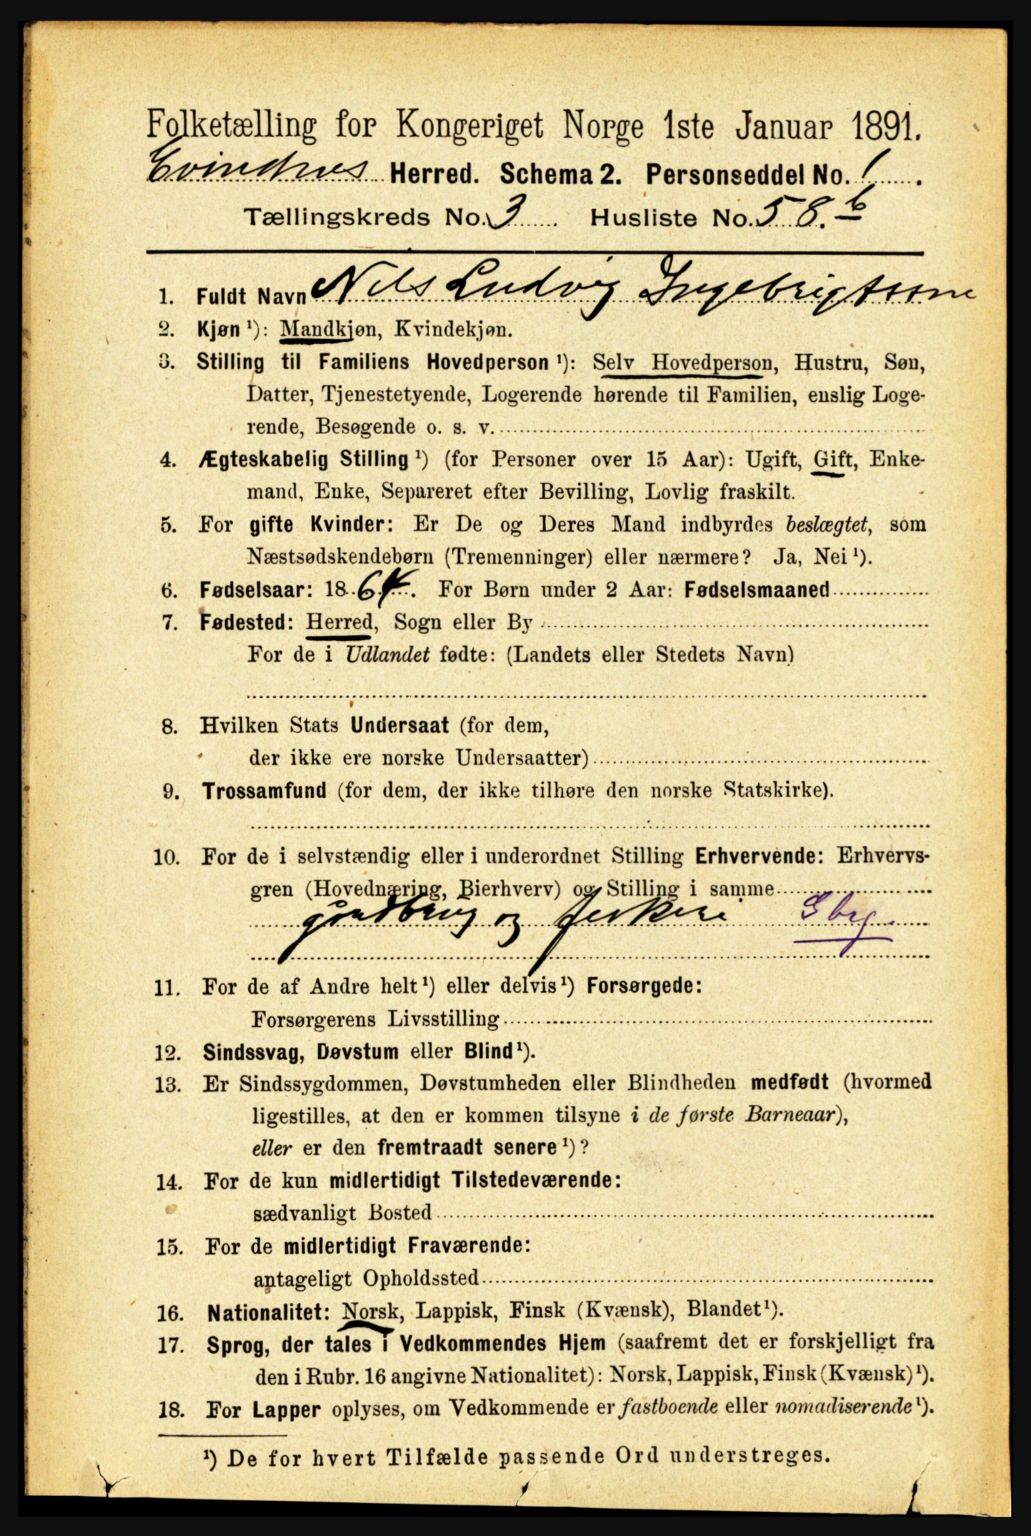 Folketælling for Kongeriget Norge 1ste Januar 1891.
Evindvig Herred. Schema 2. Personseddel No. 1.
Tællingskreds No. 3 Husliste No. 58.b
1. Fuldt Navn Nils Ludvig Ingebrigtsen
2. Kjøn ¹): Mandkjøn, Kvindekjøn.
3. Stilling til Familiens Hovedperson ¹): Selv Hovedperson, Hustru, Søn,
Datter, Tjenestetyende, Logerende hørende til Familien, enslig Loge-
rende, Besøgende o. s. v.
4. Ægteskabelig Stilling ¹) (for Personer over 15 Aar): Ugift, Gift, Enke-
mand, Enke, Separeret efter Bevilling, Lovlig fraskilt.
5. For gifte Kvinder: Er De og Deres Mand indbyrdes beslægtet, som
Næstsødskendebørn (Tremenninger) eller nærmere? Ja, Nei ¹).
6. Fødselsaar: 1864. For Børn under 2 Aar: Fødselsmaaned
7. Fødested: Herred, Sogn eller By
For de i Udlandet fødte: (Landets eller Stedets Navn)
8. Hvilken Stats Undersaat (for dem,
der ikke ere norske Undersaatter)
9. Trossamfund (for dem, der ikke tilhøre den norske Statskirke).
10. For de i selvstændig eller i underordnet Stilling Erhvervende: Erhvervs-
gren (Hovednæring, Bierhverv) og Stilling i samme
gårdbrug og feskeri Gbr.
11. For de af Andre helt ¹) eller delvis ¹) Forsørgede:
Forsørgerens Livsstilling
12. Sindssvag, Døvstum eller Blind ¹).
13. Er Sindssygdommen, Døvstumheden eller Blindheden medfødt (hvormed
ligestilles, at den er kommen tilsyne i de første Barneaar),
eller er den fremtraadt senere ¹)?
14. For de kun midlertidigt Tilstedeværende:
sædvanligt Bosted
15. For de midlertidigt Fraværende:
antageligt Opholdssted
16. Nationalitet: Norsk, Lappisk, Finsk (Kvænsk), Blandet ¹).
17. Sprog, der tales i Vedkommendes Hjem (saafremt det er forskjelligt fra
den i Rubr. 16 angivne Nationalitet): Norsk, Lappisk, Finsk (Kvænsk) ¹).
18. For Lapper oplyses, om Vedkommende er fastboende eller nomadiserende ¹).
¹) De for hvert Tilfælde passende Ord understreges.